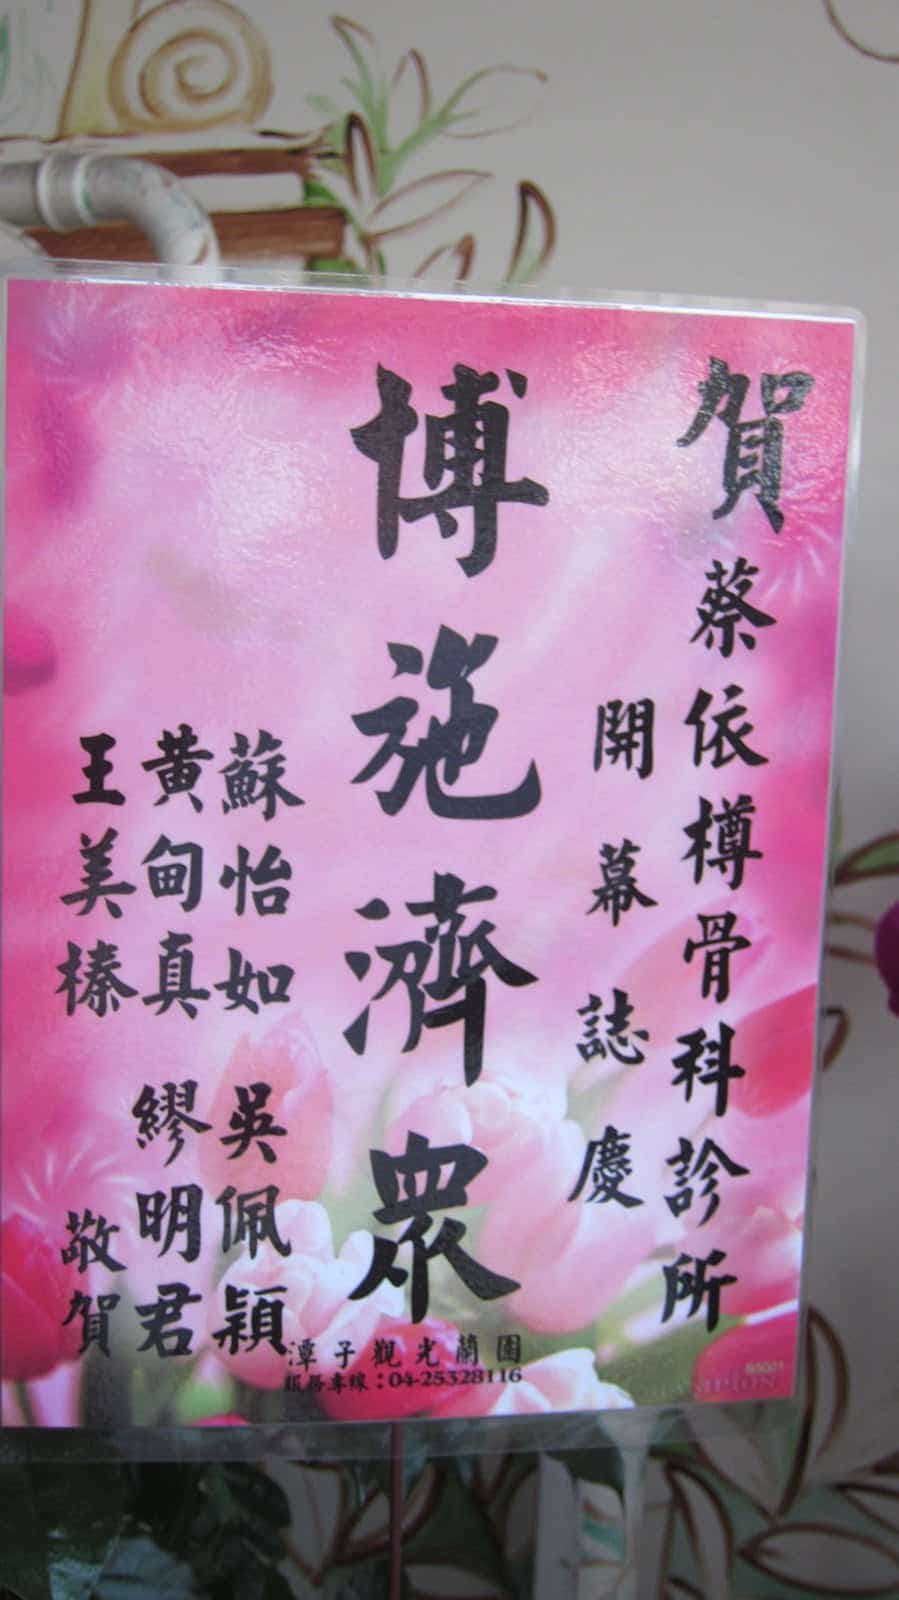 賀
蔡依樽骨科診所
開幕誌慶
博施濟眾
蘇怡如 吳佩穎
黄甸真 繆明君
王美榛 敬賀
潭子觀光蘭園
服務專線：04-25328116
B5001
CHAMPION